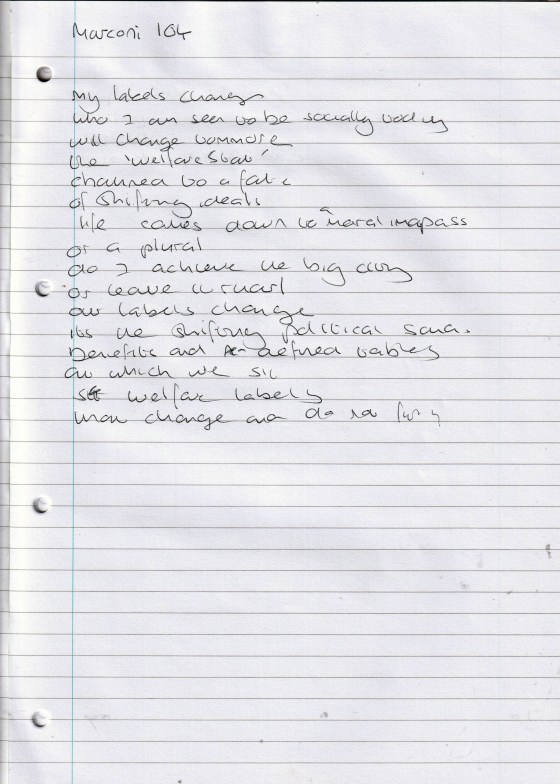 Marconi 104
My labels change
who I am seen to be socially today
will change tommore
the 'welfare State'
chained to a fate
of shifting ideals
life comes down to a moral imapass
or a plural
do I achieve the big
or leave it
our labels change
its the shifting political sand.
Benefits and defined tables
on which we sit
set welfare labels
change and do not